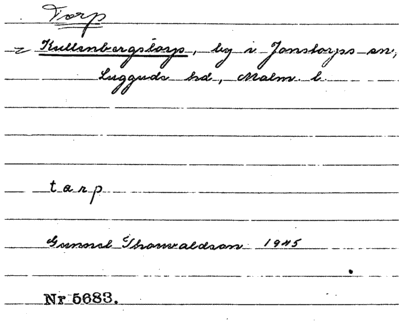 Torp
Kullenbergstorp, by i Jonstorps sn,
Luggude hd, Malm. l.
tarp
Gunnel Thorvaldson 1945
Nr 5683.